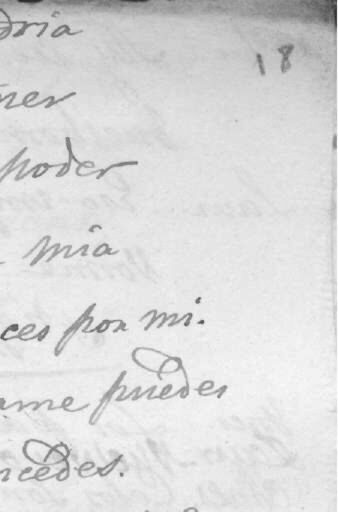 dria
18
ner
poder
mia
ces por mi.
ame puedes
ncedes.